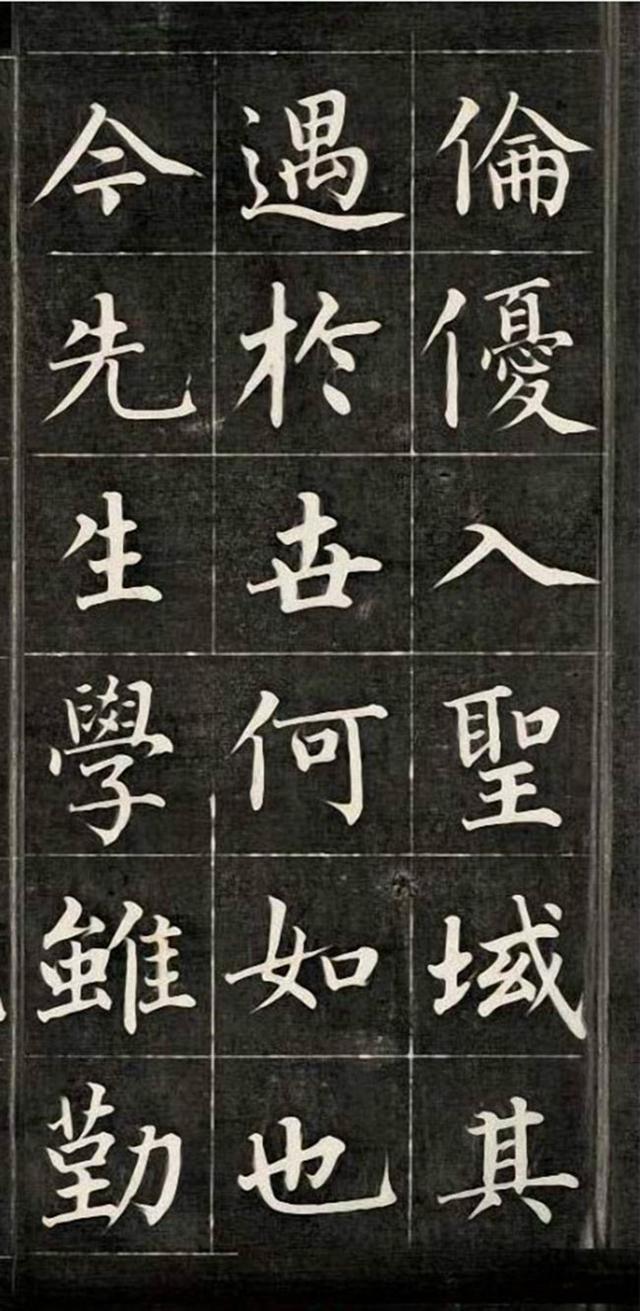 倫優入聖域其
遇於世何如也
今先生學雖勤